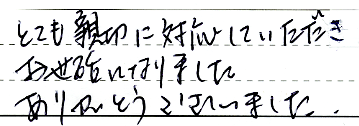 とても親切に対応していただき
お世話になりました
ありがとうございました.